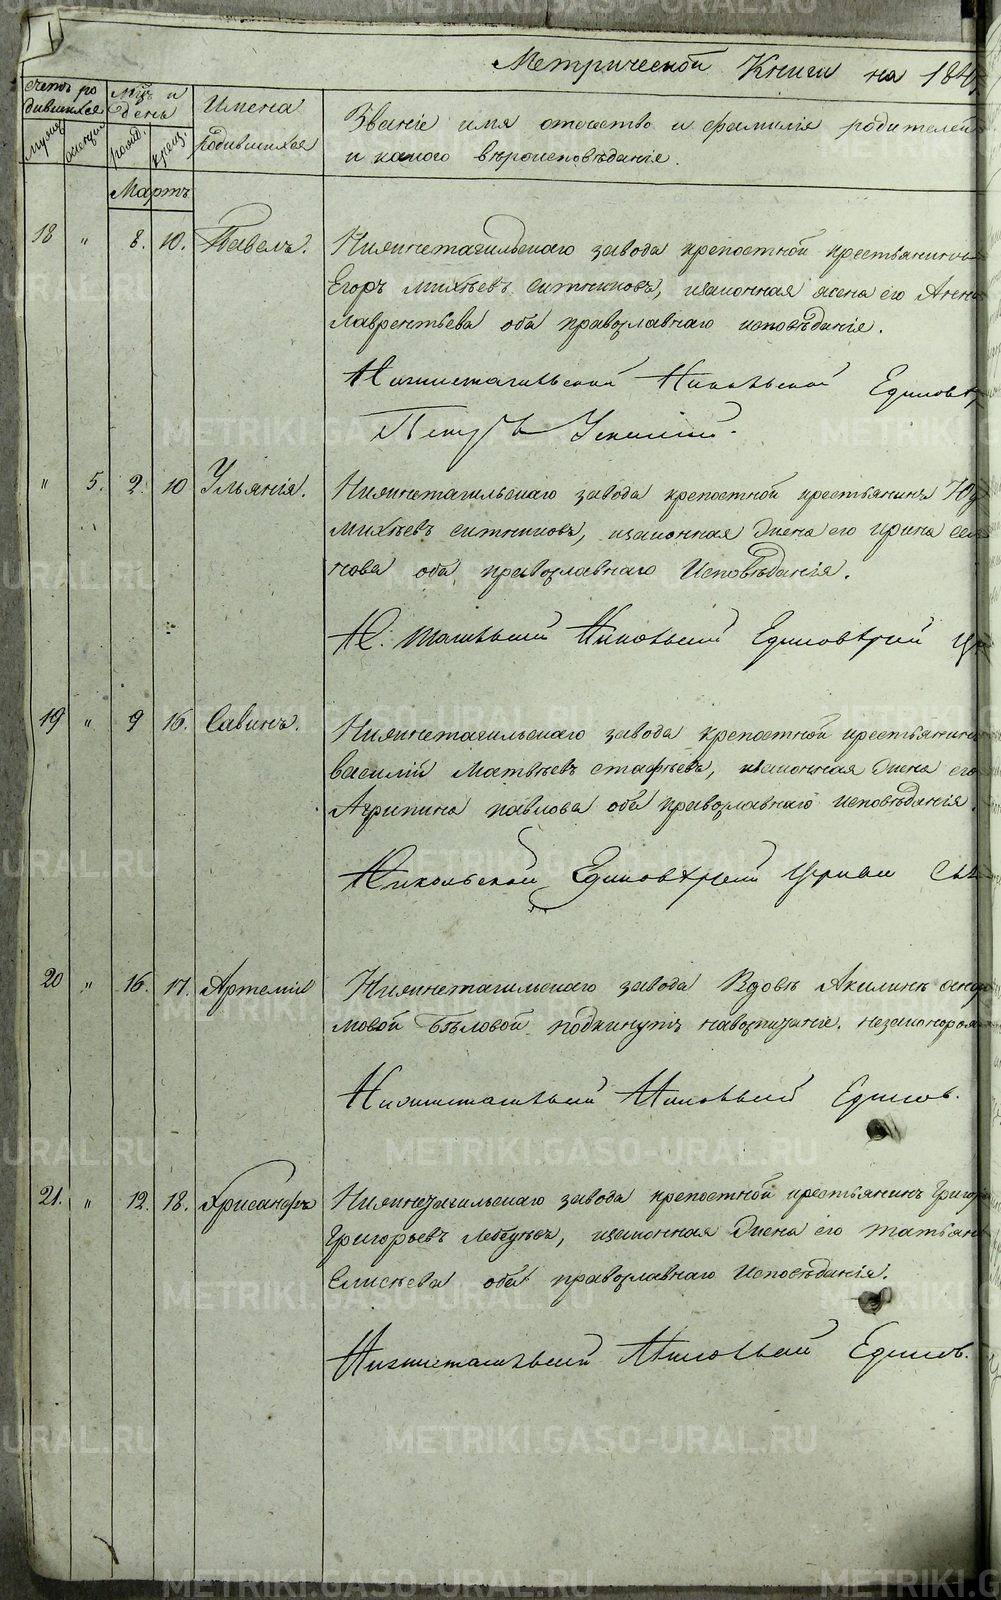 Метрической Книги на 184
Счетъ ро
дившихся
Мцъ и
день
Имена
родившихся
Званіе имя отчество и фамилія родителей
и какого вѣроисповѣданія.
мужес
женска
рожд.
крещ.
Мартъ
18 " 8. 10. Павелъ. Нижнетагильскаго завода крепостной крестьянинъ
Егоръ Михѣевъ Ситниковъ, изаконная жена его Анна
Лаврентьева оба православнаго исповѣданія.
Нижнетагильской Никольской Единовѣр
Петръ
" 5. 2. 10 Ульянія. Нижнетагильскаго завода крепостной крестьянинъ
Михѣевъ Ситниковъ, изаконная жена его Ирина Сем
нова оба православнаго Исповѣданія.
Н. Тагильской Никольской Единовѣрчй Ц
19 " 9 16. Савинъ. Нижнетагильскаго завода крепостной крестьянинъ
Василій Матвѣевъ Стафѣевъ, изаконная жена его
Агрипина Павлова оба православнаго исповѣданія.
Никольской Единовѣрчй Церкви
20 " 16. 17. Артемій Нижнетагильскаго завода Вдовѣ Акилинѣ
мовой Бѣловой подкинутъ навоспитаніе. незаконорож
Нижнетагильской Никольской Единов.
21. " 12. 18. Хрисанфъ Нижнетагильскаго завода крепостной крестьянинъ Григор
Григорьевъ изаконная жена его Татьян
Елисѣева оба православнаго Исповѣданія.
Нижнетагильской Никольской Единов.
METRIKI.GASO-URAL.RU